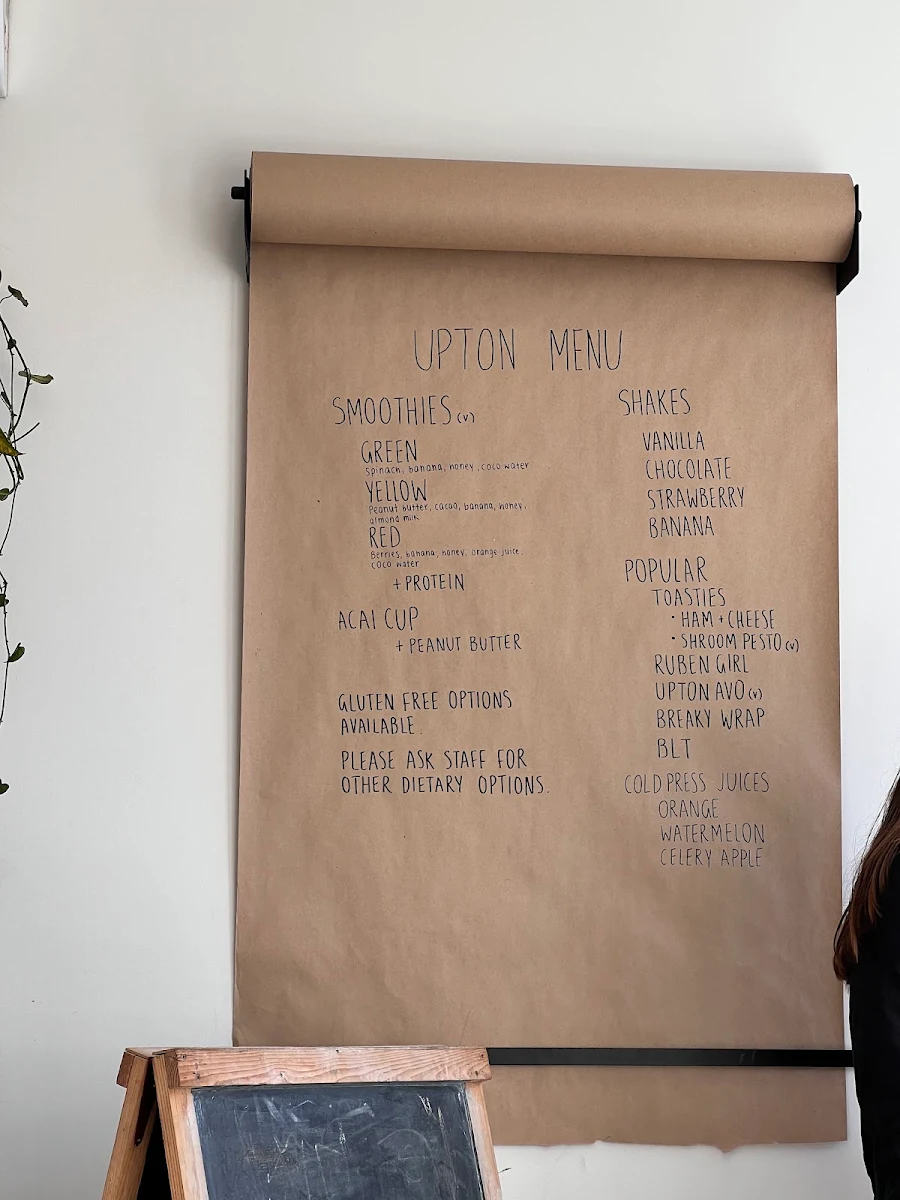 UPTON MENU
SMOOTHIES (v)
GREEN
Spinach, banana, honey, coco water
YELLOW
Peanut butter, cacao, banana, honey,
almond milk
RED
Berries, banana, honey, orange juice,
coco water
+ PROTEIN
ACAI CUP
+ PEANUT BUTTER
GLUTEN FREE OPTIONS
AVAILABLE.
PLEASE ASK STAFF FOR
OTHER DIETARY OPTIONS.
SHAKES
VANILLA
CHOCOLATE
STRAWBERRY
BANANA
POPULAR
TOASTIES
• HAM + CHEESE
• SHROOM PESTO (v)
RUBEN GIRL
UPTON AVO (v)
BREAKY WRAP
BLT
COLD PRESS JUICES
ORANGE
WATERMELON
CELERY APPLE